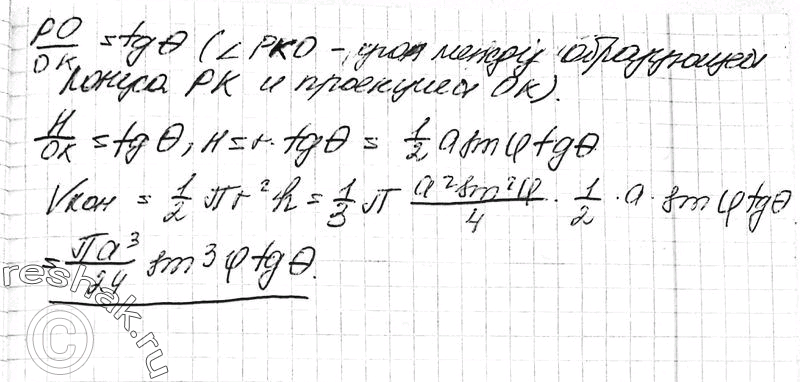 PO/OK = tgθ (∠PKO – угол между образующей
конуса PK и проекцией OK).
H/OK = tgθ, H = r · tgθ = 1/2 a sinφ tgθ
Vкон = 1/2 πr²h = 1/3 π a² sin²φ/4 · 1/2 · a · sinφ tgθ
= πa³/24 sin³φ tgθ.
reshak.ru
©